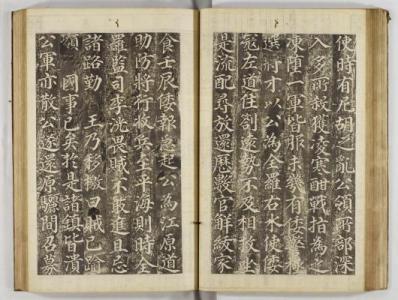 使時有尼胡之亂公領所部深
入多所斬獲凌寒酣戰指為之
凍墮一軍皆服其義有倭警極
選將才以公為全羅右水使倭
寇左道住劄遠勢不及相救坐
是流配尋放還歷數官解紱家
食壬辰倭報急起公為江原道
助防將行收兵至平海則時全
羅監司李洸畏賊不敢進且忌
諸路勤 王乃移檄曰賊已踰
嶺 國事已矣於是諸鎮皆潰
公軍亦散公遂還原驪間召募